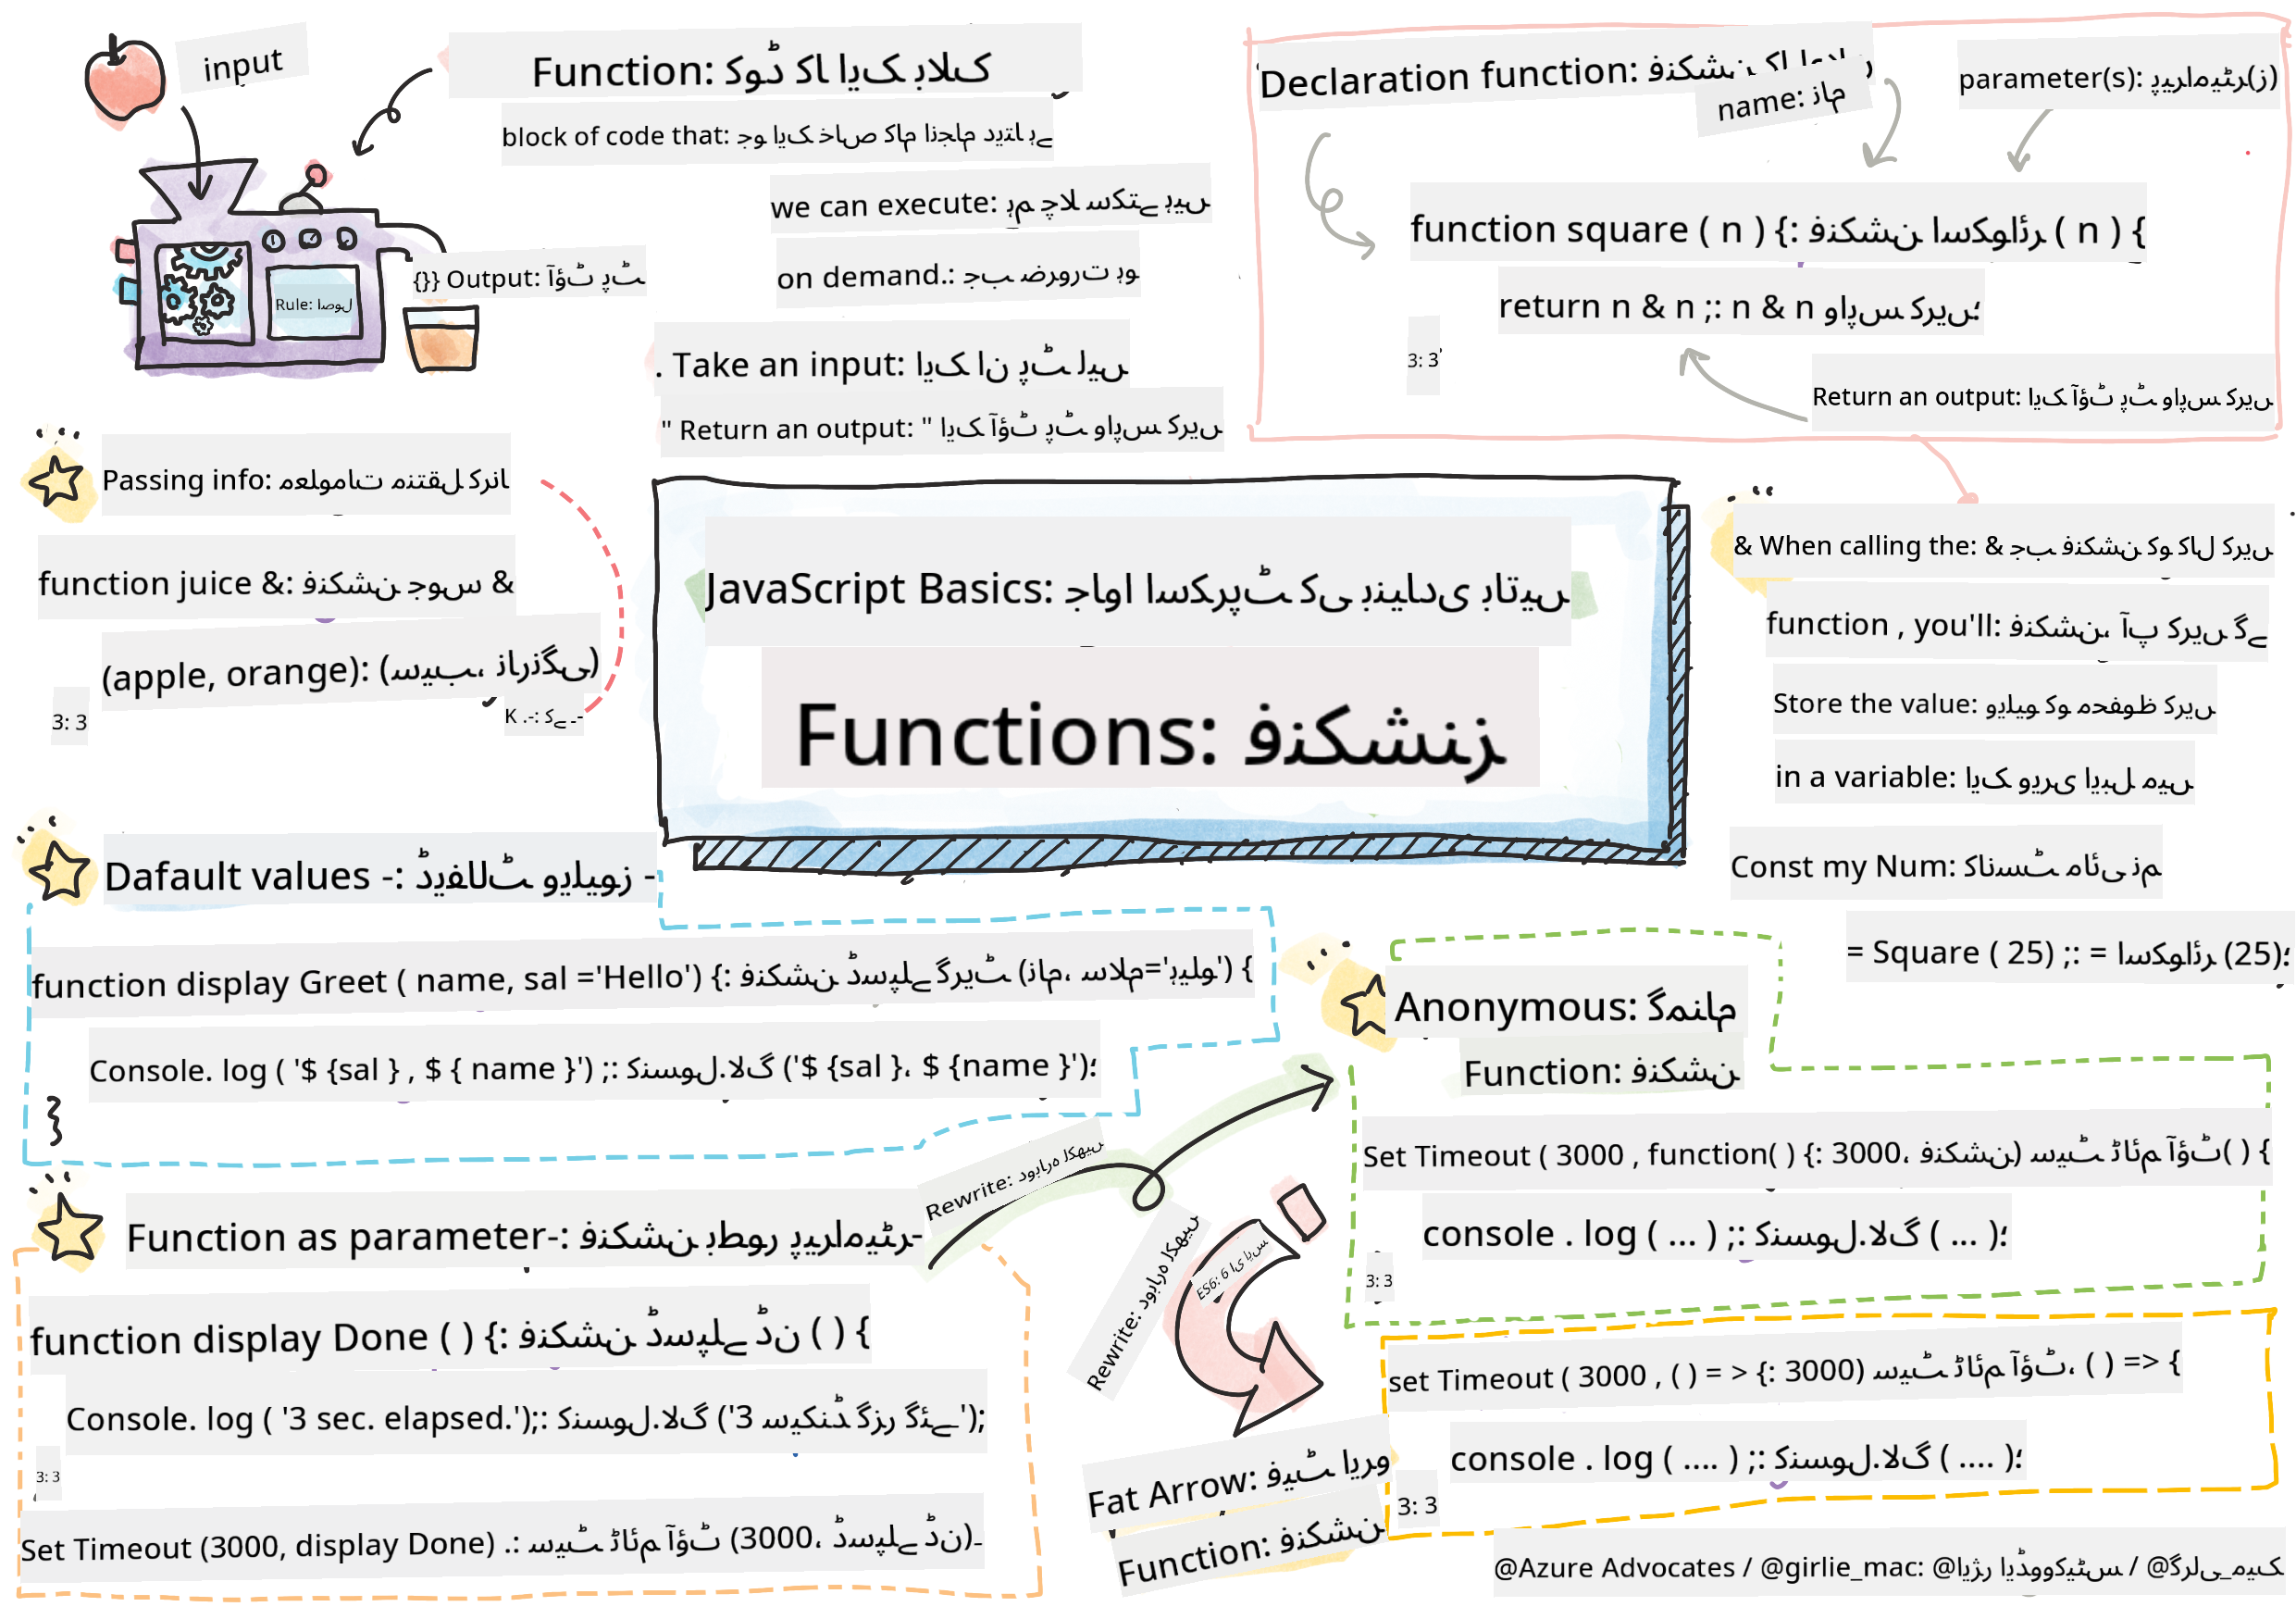 input
Function: کوڈ کا ایک بلاک
block of code that: جو ایک خاص کام انجام دیتا ہے
we can execute: ہم چلا سکتے ہیں
on demand.: جب ضرورت ہو
{}} Output: آؤٹ پٹ
Rule: اصول
. Take an input: ایک ان پٹ لیں
" Return an output: " ایک آؤٹ پٹ واپس کریں
Declaration function: فنکشن کا اعلان
name: نام
parameter(s): پیرامیٹر(ز)
function square ( n ) {: فنکشن اسکوائر ( n ) {
return n & n ;: n & n واپس کریں؛
3: 3
Return an output: ایک آؤٹ پٹ واپس کریں
Passing info: معلومات منتقل کرنا
function juice &: فنکشن جوس &
(apple, orange): (سیب، نارنگی)
3: 3
K .-: کے ۔-
JavaScript Basics: جاوا اسکرپٹ کی بنیادی باتیں
Functions: فنکشنز
& When calling the: & جب فنکشن کو کال کریں
function , you'll: فنکشن، آپ کریں گے
Store the value: ویلیو کو محفوظ کریں
in a variable: ایک ویری ایبل میں
Const my Num: کانسٹ مائی نم
= Square ( 25) ;: = اسکوائر (25)؛
Dafault values -: ڈیفالٹ ویلیوز -
function display Greet ( name, sal ='Hello') {: فنکشن ڈسپلےگریٹ (نام، سلام='ہیلو') {
Console. log ( '$ {sal } , $ { name }') ;: کنسول.لاگ ('$ {sal }، $ {name }')؛
Anonymous: گمنام
Function: فنکشن
Set Timeout ( 3000 , function( ) {: سیٹ ٹائم آؤٹ (3000، فنکشن( ) {
console . log ( ... ) ;: کنسول.لاگ ( ... )؛
3: 3
Rewrite: دوبارہ لکھیں
Rewrite: دوبارہ لکھیں
ES6: ای ایس 6
Function as parameter-: فنکشن بطور پیرامیٹر-
function display Done ( ) {: فنکشن ڈسپلے ڈن ( ) {
Console. log ( '3 sec. elapsed.');: کنسول.لاگ ('3 سیکنڈ گزر گئے');
3: 3
Set Timeout (3000, display Done) .: سیٹ ٹائم آؤٹ (3000، ڈسپلے ڈن)۔
set Timeout ( 3000 , ( ) = > {: سیٹ ٹائم آؤٹ (3000، ( ) => {
console . log ( .... ) ;: کنسول.لاگ ( .... )؛
3: 3
Fat Arrow: فیٹ ایرو
Function: فنکشن
@Azure Advocates / @girlie_mac: @ایژر ایڈووکیٹس / @گرلی_میک